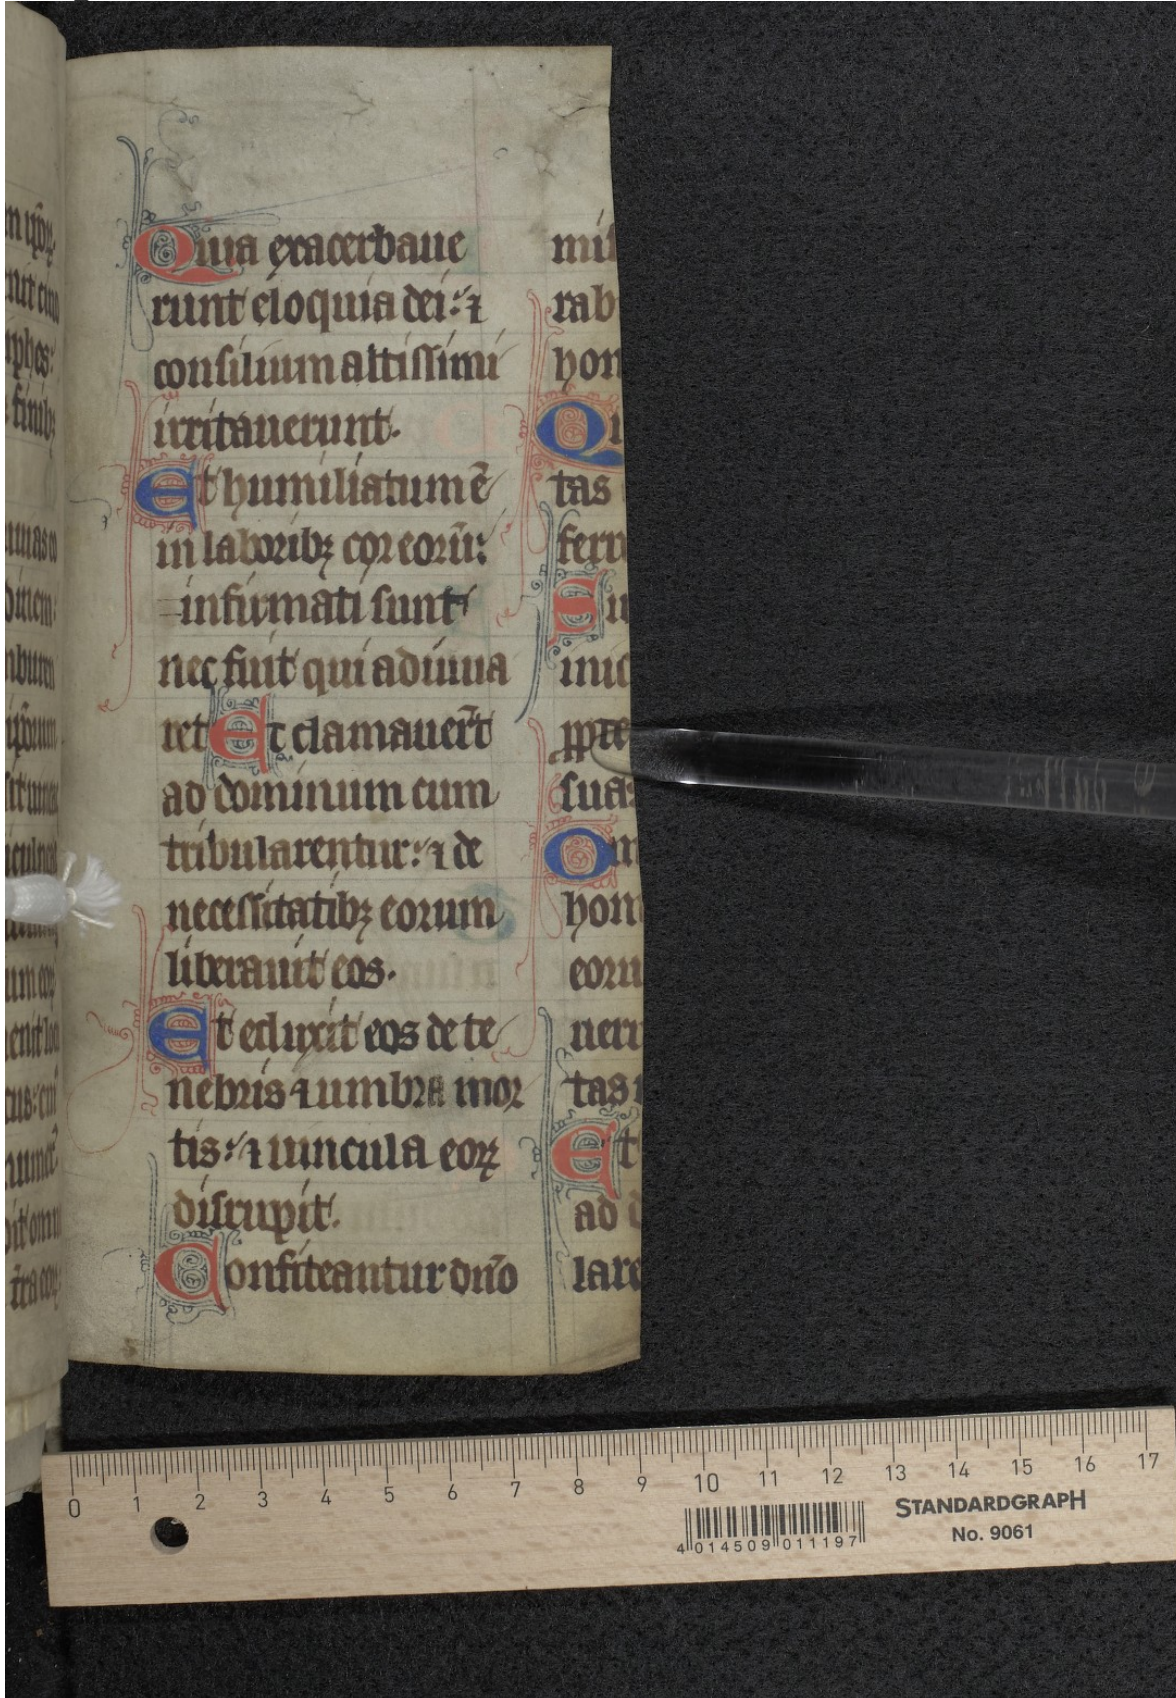 Quia exacerbaue
runt eloquia dei: ⁊
consilium altissimi
irritauerunt.
Et humiliatum ē
in laboribꝫ cor eoꝝ̄:
infirmati sunt
nec fuit qui adiuua
ret Et clamauer̄t
ad dominum cum
tribularentur: ⁊ de
necessitatibꝫ eorum
liberauit eos.
Et eduxit eos de te
nebris ⁊ umbra mor
tis: ⁊ uincula eoꝝ
disrupit.
Confiteantur dn̄o
mis
rab
hom
Qi
tas
ferr
Su
iniq
ꝓpte
suas
Om
hom
eoru
neru
tas
Et
ad d
lare
0 1 2 3 4 5 6 7 8 9 10 11 12 13 14 15 16 17
STANDARDGRAPH
No. 9061
4 014509 011197